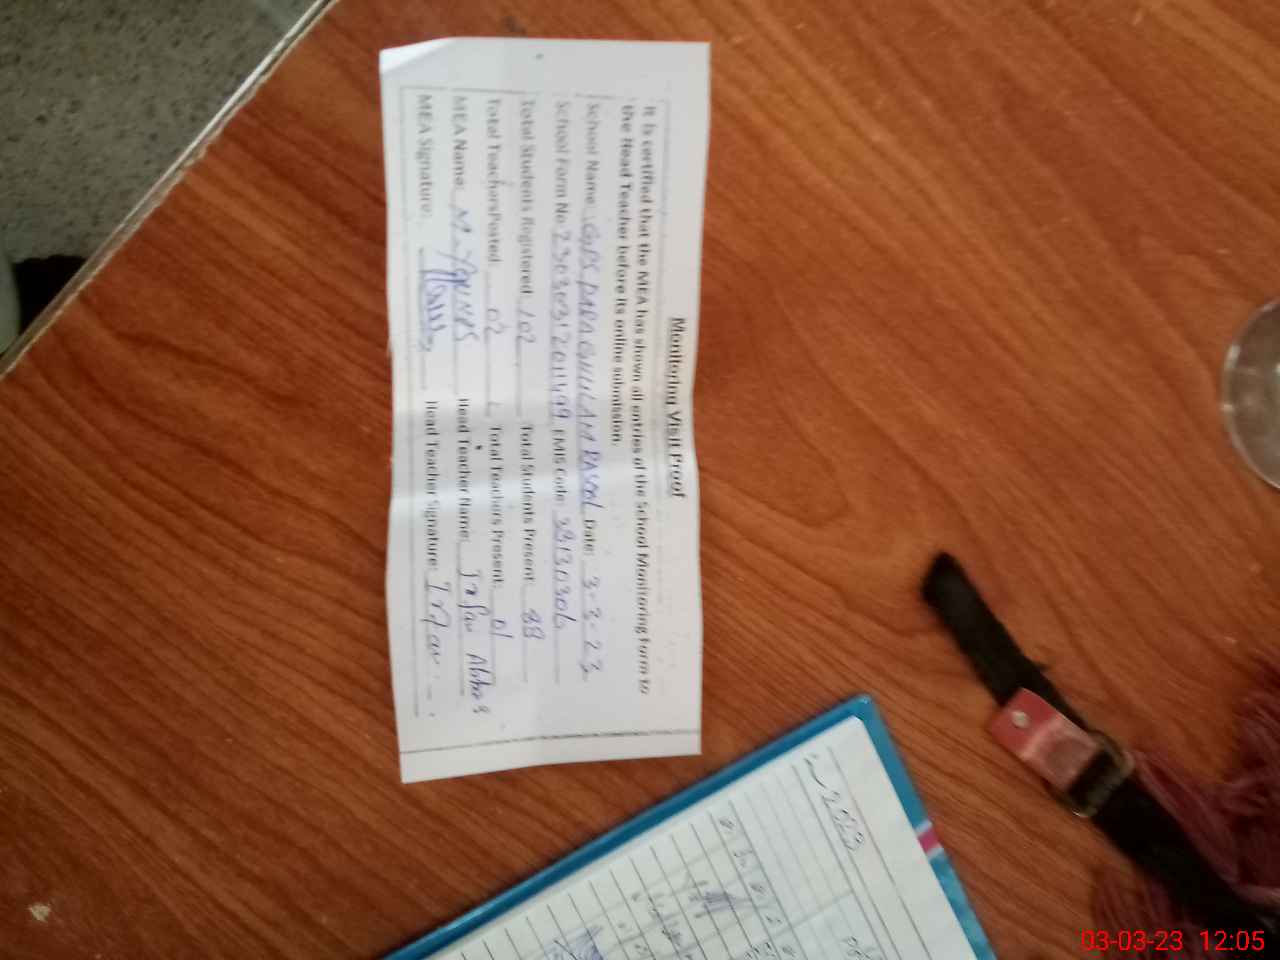 Monitoring Visit Proof
It is certified that the MEA has shown all entries of the School Monitoring Form to
the Head Teacher before its online submission.
School Name: GPS DARA GHULAM RASOOL Date: 3-3-23
School Form No 2303031201499 EMIS Code: 38130306
Total Students Registered: 102 Total Students Present: 88
Total Teachers Posted: 02 Total Teachers Present: 01
MEA Name: M-YOUNAS Head Teacher Name: Irfan Abbas
MEA Signature: Head Teacher Signature: Irfan
2023
03-03-23 12:05